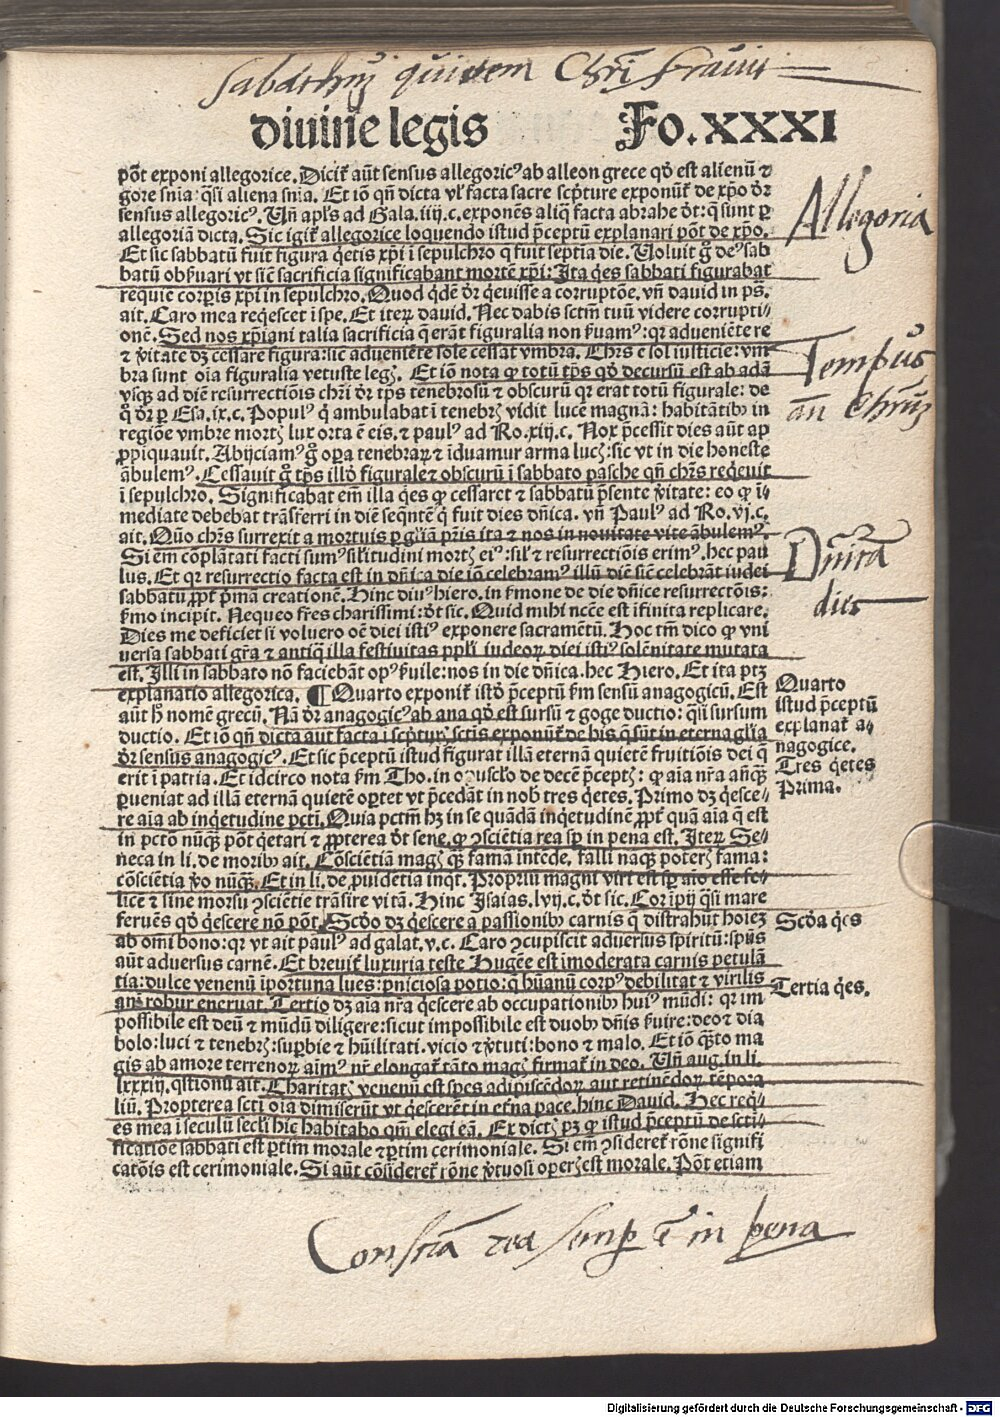 Sabathū quidem Christi figurauit
divine legis Fo. XXXI
pōt exponi allegorice. Dicit᷑ aūt sensus allegoricꝰ ab alleon grece qđ est alienū ⁊
gore snīa: q̄si aliena snīa. Et iō qn̄ dicta vl̓ facta sacre scp̄ture exponūt᷑ de xp̄o dr̄
sensus allegoricꝰ. Un̄ apl̓s ad Gala. iiij. c. exponēs aliq̄ facta abrahe dt̄: q̄ sunt ꝑ
allegoriā dicta. Sic igit᷑ allegorice loquendo istud p̄ceptū explanari pōt de xp̄o.
Et sic sabbatū fuit figura q̄etis xp̄i ī sepulchro q̄ fuit septīa die. Uoluit g̊ deꝰ sab
batū obẞuari vt sicut sacrificia significabant mortē xp̄i: Ita q̄es sabbati figurabat
requiē corpīs xp̄i in sepulchro. Quod q̄dē dr̄ q̄euisse a corruptōe. vn̄ dauid in ps̄.
ait. Caro mea req̄escet ī spe. Et iterꝝ dauid. Nec dabis sctm̄ tuū videre corrupti-
onē. Sed nos xp̄iani talia sacrificia q̄ erāt figuralia non ẞuamꝰ: qr adueniēte re
⁊ v̓itate dꝫ cessare figura: sic adueniēte sole cessat vmbra. Chrs̄ ē sol iusticie: vm
bra sunt oīa figuralia vetuste legꝭ. Et iō nota ꝙ totū tp̄s qđ decursū est ab adā
vsqꝫ ad diē resurrectiōis chrī dr̄ tp̄s tenebrosū ⁊ obscurū qr erat totū figurale: de
q̊ dr̄ ꝑ Esa. ix. c. Populꝰ q̄ ambulabat ī tenebrꝭ vidit lucē magnā: habitātibꝰ in
regiōe vmbre mortꝭ lux orta ē eis. ⁊ paulꝰ ad Ro. xiij. c. Nox p̄cessit dies aūt ap
ꝓpiquauit. Abijciamꝰ g̊ oꝑa tenebrarꝝ ⁊ īduamur arma lucꝭ: sic vt in die honeste
ābulemꝰ. Cessauit g̊ tp̄s illđ figurale ⁊ obscurū ī sabbato pasche qn̄ chrs̄ req̄euit
ī sepulchro. Significabat em̄ illa q̄es ꝙ cessaret ⁊ sabbatū p̄sente v̓itate: eo ꝙ ī-
mediate debebat trāsferri in diē seq̄ntē q̄ fuit dies dn̄ica. vn̄ Paulꝰ ad Ro. vj. c.
ait. Quō chrs̄ surrexit a mortuis ꝑ gl̓iā pr̄is ita ⁊ nos in nouitate vite ābulemꝰ.
Si em̄ cōplātati facti sumꝰ sil̓itudini mortꝭ eiꝰ: sil̓ ⁊ resurrectiōis erimꝰ. hec pau
lus. Et qr resurrectio facta est in dn̄ica die iō celebramꝰ illū diē sic̄ celebrāt iudei
sabbatū ꝓpt̓ p̄mā creationē. Hinc diuꝰ hiero. in ẞmone de die dn̄ice resurrectōis:
ẞmo incipit. Nequeo fr̄es charissimi: dt̄ sic. Quid mihi nc̄ce est īfinita replicare.
Dies me deficiet si voluero oē diei istiꝰ exponere sacramētū. Hoc tm̄ dico ꝙ vni
uersa sabbati gr̄a ⁊ antiq̄ illa festiuitas ppl̓i iudeoꝝ diei istiꝰ solēnitate mutata
est. Illi in sabbato nō faciebāt opꝰ ẞuile: nos in die dn̄ica. hec Hiero. Et ita ptꝫ
explanatio allegorica. ¶ Quarto exponit᷑ istđ p̄ceptū ẞm sensū anagogicū. Est
aūt h̄ nomē grecū. Nā dr̄ anagogicꝰ ab ana qđ est sursū ⁊ goge ductio: q̄si sursum
ductio. Et iō qn̄ dicta aut facta ī scp̄turꝭ sctīs exponūt᷑ de his q̄ sūt in eterna gl̓ia
dr̄ sensus anagogicꝰ. Et sic p̄ceptū istud figurat illā eternā quietē fruitiōis dei q̄
erit ī patria. Et idcirco nota ẞm Tho. in opusclo de decē p̄ceptꝭ: ꝙ aīa nr̄a anq̄ꝫ
ꝑueniat ad illā eternā quietē oꝑtet vt p̄cedāt in nob̄ tres q̄etes. Primo dꝫ q̄esce-
re aīa ab inq̄etudine pctī. Quia pctm̄ hꝫ in se quādā inq̄etudinē ꝓpt̓ quā aīa q̄ est
in pctō nūqꝫ pōt q̄etari ⁊ ꝓpterea dt̄ sene. ꝙ ꝯsciētia rea sꝑ in pena est. Iterꝝ Se-
neca in li. de moribꝰ ait. Cōsciētiā magꝭ qꝫ famā intēde, falli naqꝫ poterꝭ fama:
cōsciētia v̓o nūqꝫ. Et in li. de ꝓuidētia inq̄t. Propriū magni viri est sꝑ aīo esse fe-
licē ⁊ sine morsu ꝯsciētie trāsire vitā. Hinc Isaias. lvij. c. dt̄ sic. Cor ipij q̄si mare
feruēs qđ q̄escere nō pōt. Scđo dꝫ q̄escere a passionibꝰ carnis q̄ distrahūt hoiēꝫ
ab omī bono: qr vt ait paulꝰ ad galat. v. c. Caro ꝯcupiscit aduersus spiritū: spūs
aūt aduersus carnē. Et breuit̓ luxuria teste Hugōe est īmoderata carnis petulā
tia: dulce venenū īportuna lues: ꝑniciosa potio: q̄ hūanū corpꝰ debilitat ⁊ virilis
anī robur eneruat. Tertio dꝫ aīa nr̄a q̄escere ab occupationibꝰ huiꝰ mūdi: qr im
possibile est deū ⁊ mūdū diligere: sicut impossibile est duobꝰ dn̄is ẞuire: deo ⁊ dia
bolo: luci ⁊ tenebrꝭ: suꝑbie ⁊ hūilitati. vicio ⁊ v̓tuti: bono ⁊ malo. Et iō q̄ꝫto ma
gis ab amore terrenoꝝ aīmꝰ nr̄ elongat᷑ tāto magꝭ firmat᷑ in deo. Un̄ aug. in li.
lxxxiij. q̄stionū ait. Charitatꝭ venenū est spes adipiscēdoꝝ aut retinēdoꝝ tēpora
liū. Propterea sctī oīa dimiserūt vt q̄escerēt in et̓na pace. hinc Dauid. Hec req̄i-
es mea ī seculū secl̓i hic habitabo qm̄ elegi eā. Ex dictꝭ pꝫ ꝙ istud p̄ceptū de sctī-
ficatiōe sabbati est ꝑtim morale ⁊ ꝑtim cerimoniale. Si em̄ ꝯsideret᷑ rōne signifi
catōis est cerimoniale. Si aūt cōsideret᷑ rōne v̓tuosi oꝑꝭ est morale. Pōt etiam
Allegoria
Tempus
an Christū
Dn̄ica
dies
Quarto
istud p̄ceptū
explanat᷑ a-
nagogice.
Tres q̄etes
Prima.
Scđa q̄es
Tertia q̄es.
Conscīa rea semꝑ ē in pena
Digitalisierung gefördert durch die Deutsche Forschungsgemeinschaft - DFG